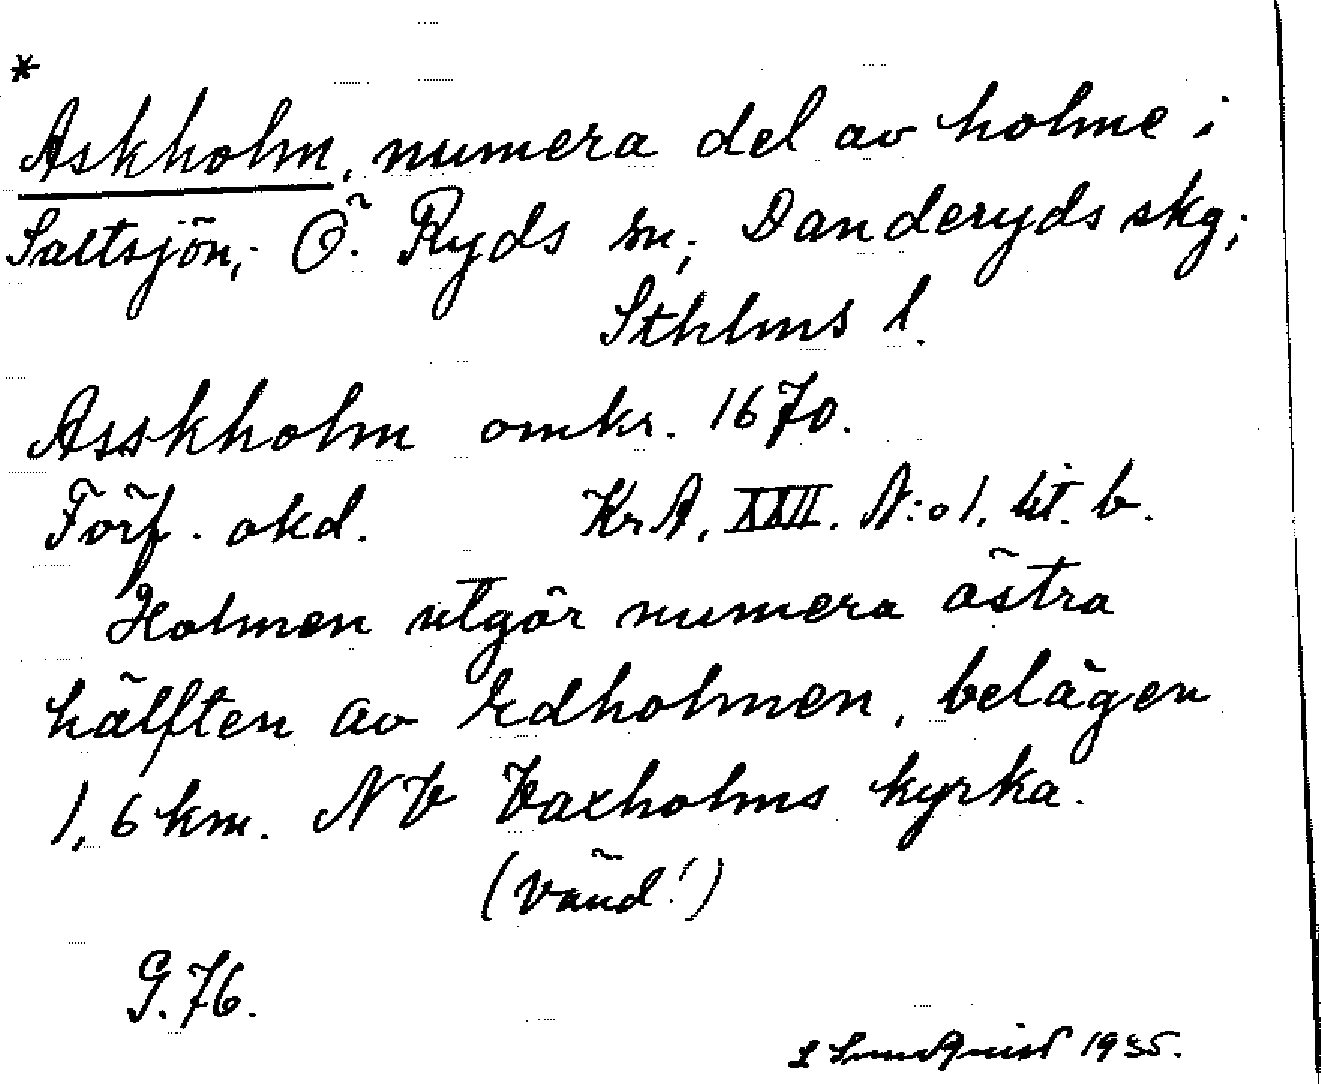 *
Askholm, numera del av holme i
Saltsjön, Ö. Ryds sn, Danderyds skg,
Sthlms l.
Asskholm omkr. 1670.
Förf. okd. KrA, XXII. N:o 1. lit. b.
Holmen utgör numera östra
hälften av Edholmen, belägen
1,6 km. NV Vaxholms kyrka.
(Vänd!)
G.76.
1935.